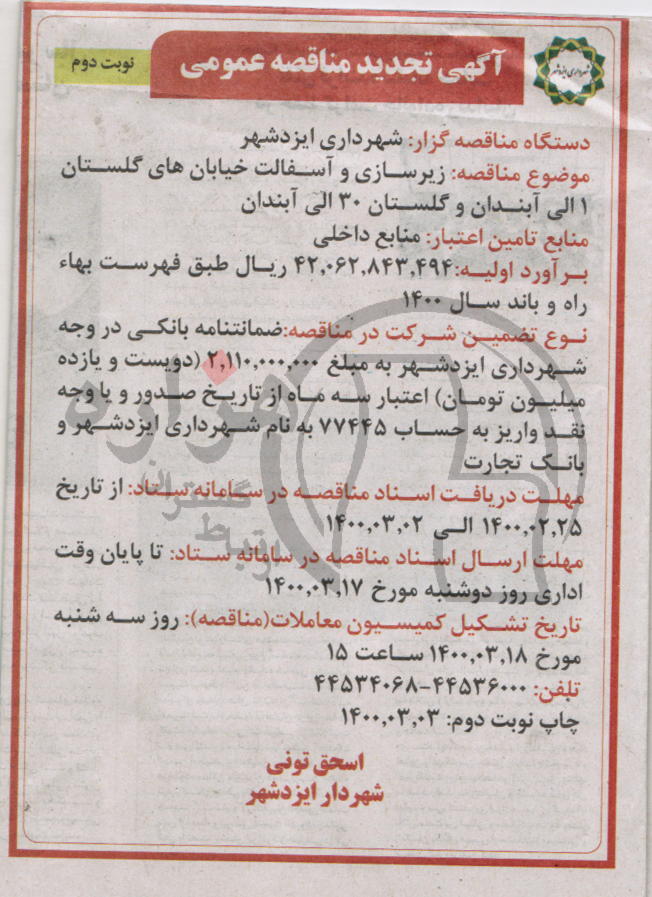 آگهی تجدید مناقصه عمومی
نوبت دوم
شهرداری ایزدشهر
دستگاه مناقصه گزار: شهرداری ایزدشهر
موضوع مناقصه: زیرسازی و آسفالت خیابان های گلستان
۱ الی آبندان و گلستان ۳۰ الی آبندان
منابع تامین اعتبار: منابع داخلی
برآورد اولیه:۴۲,۰۶۲,۸۴۳,۴۹۴ ریال طبق فهرست بهاء
راه و باند سال ۱۴۰۰
نوع تضمین شرکت در مناقصه:ضمانتنامه بانکی در وجه
شهرداری ایزدشهر به مبلغ ۲,۱۱۰,۰۰۰,۰۰۰ (دویست و یازده
میلیون تومان) اعتبار سه ماه از تاریخ صدور و یا وجه
نقد واریز به حساب ۷۷۴۴۵ به نام شهرداری ایزدشهر و
بانک تجارت
مهلت دریافت اسناد مناقصه در سامانه ستاد: از تاریخ
۱۴۰۰,۰۲,۲۵ الی ۱۴۰۰,۰۳,۰۲
مهلت ارسال اسناد مناقصه در سامانه ستاد: تا پایان وقت
اداری روز دوشنبه مورخ ۱۴۰۰,۰۳,۱۷
تاریخ تشکیل کمیسیون معاملات(مناقصه): روز سه شنبه
مورخ ۱۴۰۰,۰۳,۱۸ ساعت ۱۵
تلفن: ۴۴۵۳۶۰۰۰-۴۴۵۳۴۰۶۸
چاپ نوبت دوم: ۱۴۰۰,۰۳,۰۳
اسحق تونی
شهردار ایزدشهر
هزاره
گستران
ارتباط